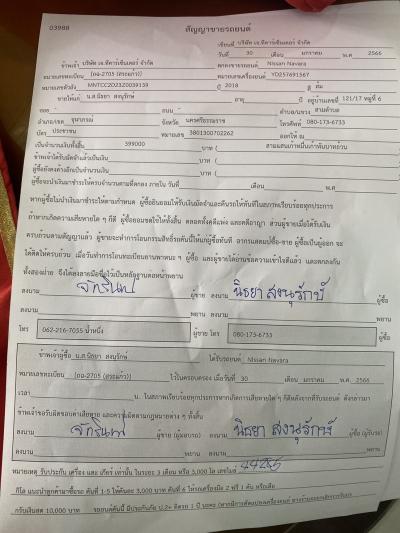 03988
สัญญาขายรถยนต์
เขียนที่ บริษัท เจ.ทีคาร์เซ็นเตอร์ จำกัด
วันที่ 30 เดือน มกราคม พ.ศ 2566
ข้าพเจ้า บริษัท เจ.ทีคาร์เซ็นเตอร์ จำกัด ตกลงขายรถยนต์ Nissan Navara
หมายเลขทะเบียน (ถอ-2705 (สระแก้ว)) หมายเลขเครื่องยนต์ YD257691567
หมายเลขตัวถัง MNTCC2D23Z0039139 ปี 2018 สี ส้ม
ขายให้แก่ น.ส.นิธยา สงนุรักษ์ อายุ ปี อยู่บ้านเลขที่ 121/17 หมู่ที่ 6
ซอย - ถนน - ตำบล/แขวง สามตำบล
อำเภอ/เขต จุฬาภรณ์ จังหวัด นครศรีธรรมราช โทรศัพท์ 080-173-6733
บัตร ประชาชน หมายเลข 3801300702262 ออกให้ ณ
เป็นจำนวนเงินทั้งสิ้น 399000 บาท ( สามแสนเก้าหมื่นเก้าพันบาทถ้วน
ข้าพเจ้าได้รับมัดจำแล้วเป็นเงิน บาท (
ผู้ซื้อยังคงค้างอีกเป็นจำนวนเงิน บาท (
ผู้ซื้อจะนำเงินมาชำระให้ครบจำนวนตามที่ตกลง ภายใน วันที่ เดือน พ.ศ
หากผู้ซื้อไม่นำเงินมาชำระให้ตามกำหนด ผู้ซื้อยินยอมให้ริบเงินมัดจำและคืนรถให้ทันทีในสภาพเรียบร้อยทุกประการ
ถ้าหากเกิดความเสียหายใด ๆ ก็ดี ผู้ซื้อยอมชดใช้ให้ทั้งสิ้น ตลอดทั้งคดีแพ่ง และคดีอาญา ส่วนผู้ขายเมื่อได้รับเงิน
ครบถ้วนตามสัญญาแล้ว ผู้ขายจะทำการโอนกรรมสิทธิ์รถคันนี้ให้แก่ผู้ซื้อทันที
ทั้งสองฝ่าย จึงได้ลงลายมือชื่อไว้เป็นหลักฐานต่อหน้าพยาน
ลงนาม ผู้ขาย ลงนาม นิธยา สงนุรักษ์ ผู้ซื้อ
ลงนาม พยาน ลงนาม พยาน
โทร 062-216-7035 น้ำหนึ่ง ผู้ขาย โทร 080-173-6733 ผู้ซื้อ
ข้าพเจ้าผู้ซื้อ น.ส.นิธยา สงนุรักษ์ ได้รับรถยนต์ Nissan Navara
หมายเลขทะเบียน (ถอ-2705 (สระแก้ว)) ไว้ในครอบครอง เมื่อวันที่ 30 เดือน มกราคม พ.ศ. 2566
เวลา น. ในสภาพเรียบร้อยทุกประการหากเกิดการเสียหายใด ๆ ก็ดีหลังจากที่รับรถยนต์ ดังกล่าวมา
ข้าพเจ้าขอรับผิดชอบค่าเสียหาย และความผิดตามกฎหมายต่าง ๆ ทั้งสิ้น
ลงนาม ผู้ขาย (ผู้มอบรถ) ลงนาม นิธยา สงนุรักษ์ ผู้ซื้อ (ผู้รับรถ)
ลงนาม พยาน ลงนาม พยาน
หมายเหตุ รับประกัน เครื่อง และ เกียร์ เท่านั้น ในระยะ 3 เดือน หรือ 3,000 โล เลขไมล์
กิโล แนะนำลูกค้ามาซื้อรถ คันที่ 1-5 ให้คันละ 3,000 บาท คันที่ 6